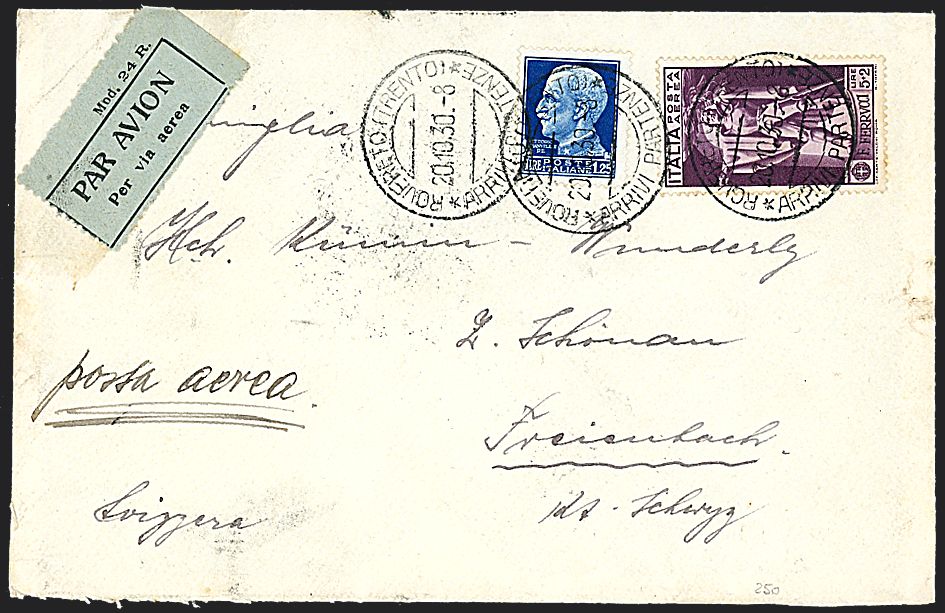 Mod. 24 R.
PAR AVION
Per via aerea
ROVERETO (TRENTO)
20.10.30.-8
* ARRIVI PARTENZE *
POSTE
ITALIANE
LIRE 1.25
ITALIA POSTA
AEREA
LIRE
5+2
F. FERRVCCI
Famiglia
Hch. Kümin - Wunderly
Z. Schönau
posta aerea.
Freienbach.
Svizzera
Kt. Schwyz
250